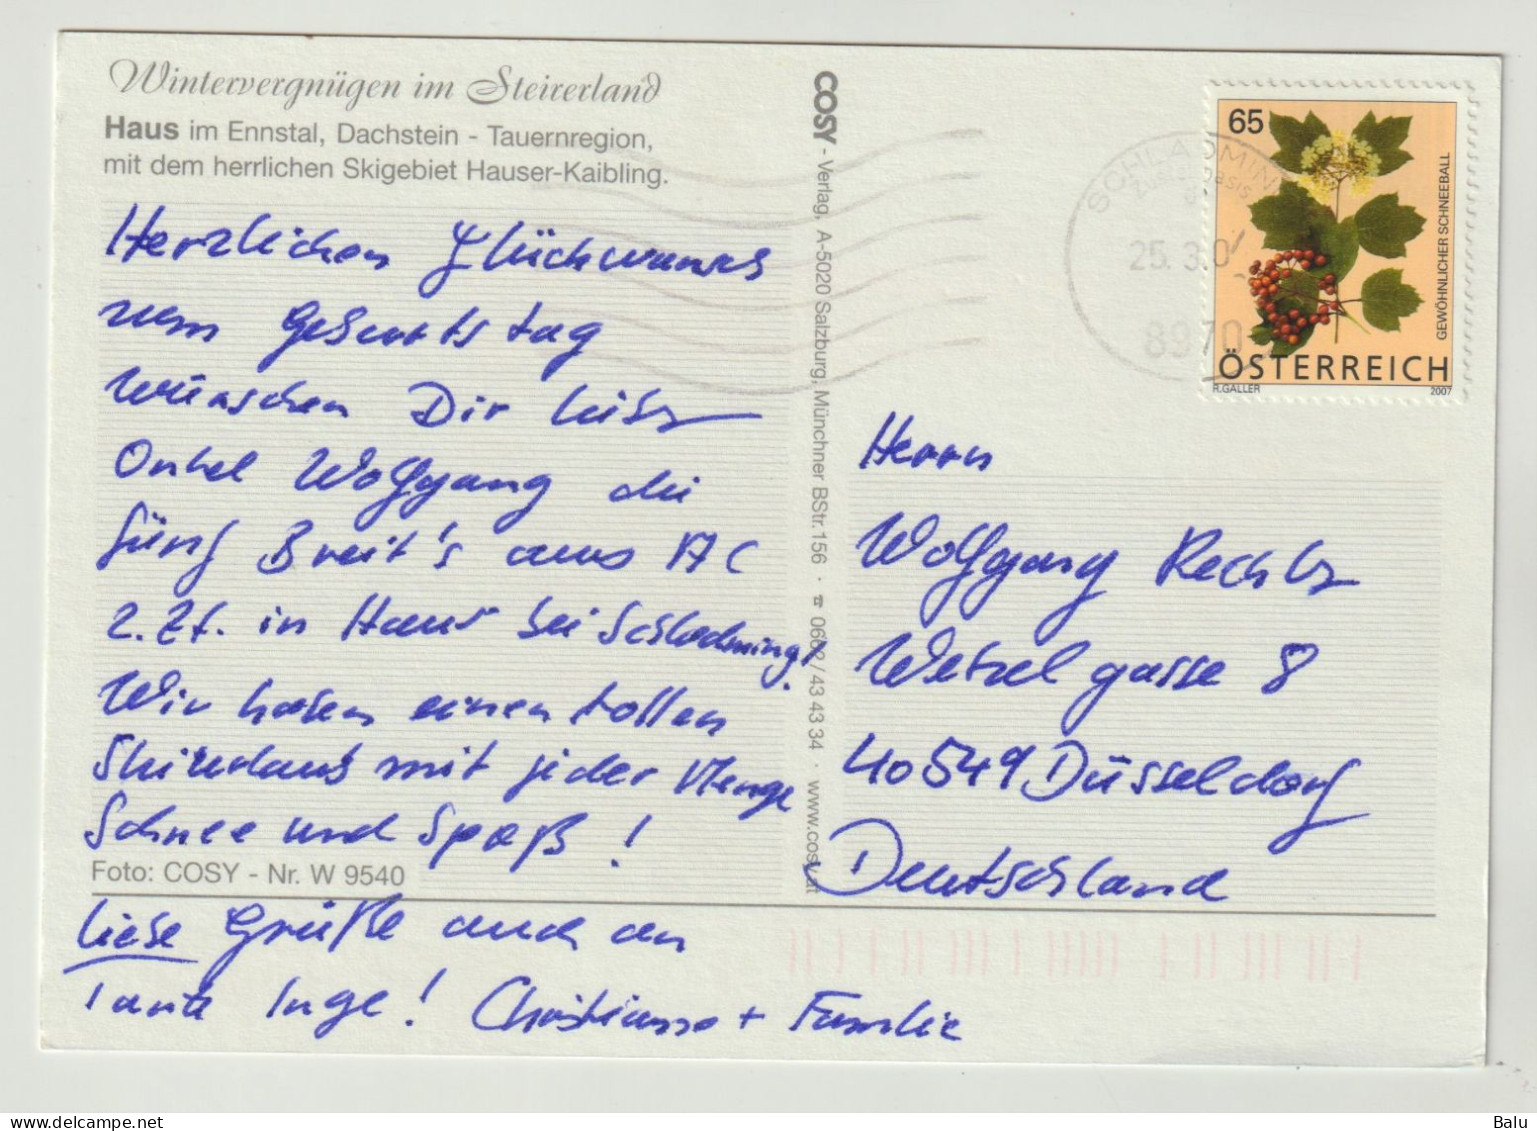 Wintervergnügen im Steirerland
Haus im Ennstal, Dachstein - Tauernregion,
mit dem herrlichen Skigebiet Hauser-Kaibling.
Herzlichen Glückwunsch
zum Geburtstag
wünschen Dir lieber
Onkel Wolfgang die
fünf Breit's aus AC
z. Zt. in Haus bei Schladming!
Wir haben einen tollen
Skiurlaub mit jeder Menge
Schnee und Spaß!
Foto: COSY - Nr. W 9540
Liebe Grüße auch an
Tante Inge! Christiane + Familie
COSY - Verlag, A-5020 Salzburg, Münchner BStr. 156 · ☎ 0662 / 43 43 34 · www.cosy.at
SCHLADMIN
25. 3. 0
8970
65
GEWÖHNLICHER SCHNEEBALL
ÖSTERREICH
R.GALLER 2007
Herrn
Wolfgang Rechter
Wetzelgasse 8
40549 Düsseldorf
Deutschland
www.delcampe.net
Balu